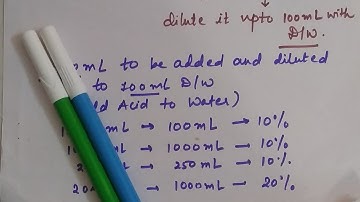 dilute it upto 100mL with
D/W.
mL to be added and diluted
to 100mL D/W
Acid to Water)
mL → 100mL → 10%
mL → 1000mL → 10%
→ 250mL → 10%.
→ 1000mL → 20%